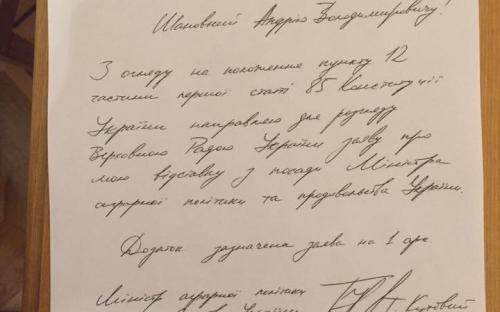 Шановний Андрію Володимировичу!
З огляду на положення пункту 12
частини першої статті 85 Конституції
України направляю для розгляду
Верховною Радою України заяву про
мою відставку з посади Міністра
аграрної політики та продовольства України.
Додаток зазначена заява на 1 арк.
Міністр аграрної політики
України Т. Кутовий